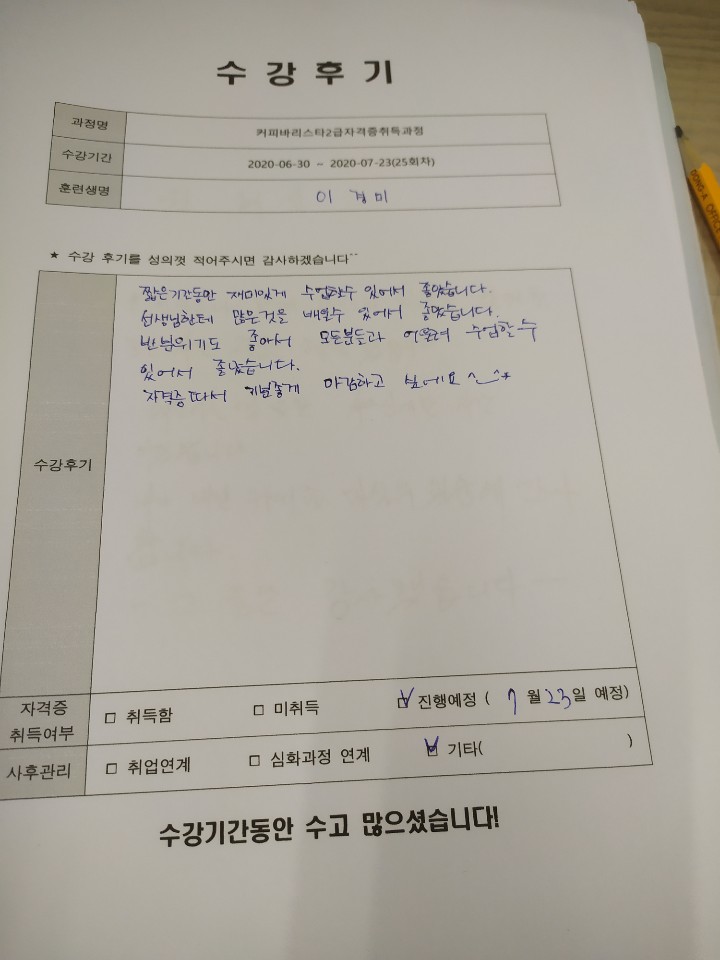 수 강 후 기
과정명 커피바리스타2급자격증취득과정
수강기간 2020-06-30 ~ 2020-07-23(25회차)
훈련생명 이 경 미
★ 수강 후기를 성의껏 적어주시면 감사하겠습니다^^
짧은기간동안 재미있게 수업할수 있어서 좋았습니다.
선생님한테 많은것을 배울수 있어서 좋았습니다.
반분위기도 좋아서 모든분들과 어울려 수업할 수
있어서 좋았습니다.
자격증따서 기분좋게 마감하고 싶네요 ^_^*
수강후기
자격증 취득여부 □ 취득함 □ 미취득 ☑ 진행예정 ( 7 월 23일 예정)
사후관리 □ 취업연계 □ 심화과정 연계 ☑ 기타( )
수강기간동안 수고 많으셨습니다!
DONG-A OFFICE